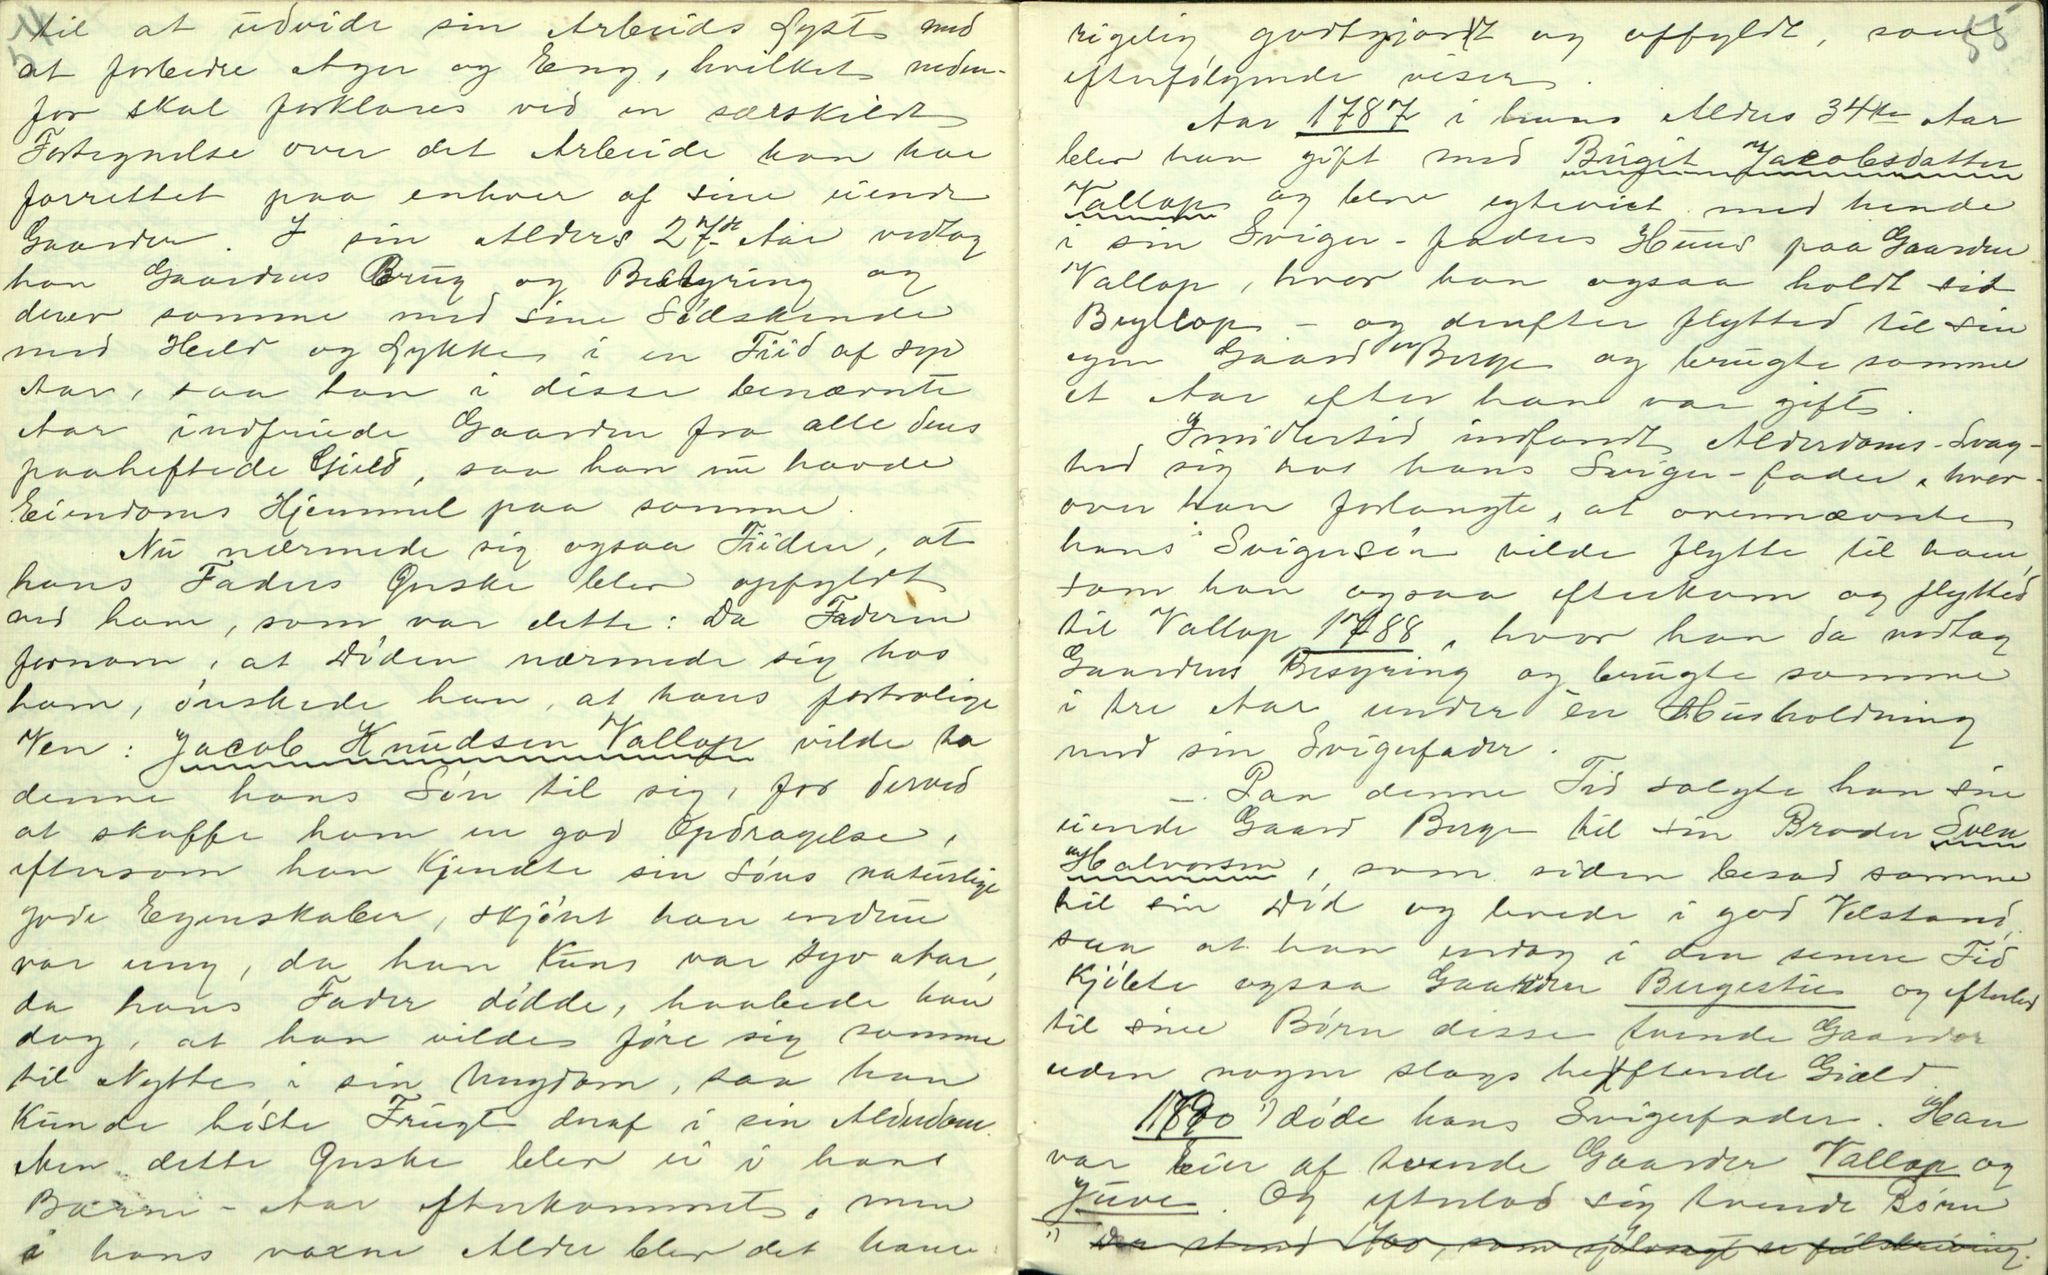 54
til at udvide sin Arbeids Lyst med
at forbedre Ager og Eng, hvilket neden-
for skal forklares ved en særskildt
Fortegnelse over det Arbeide han har
forrettet paa enhver af sine eiende
Gaarder. I sin Alders 27de Aar vedtog
han Gaardens Brug og Bestyring og
drev samme med sine Södskende
med Held og Lykke i en Tiid af syv
Aar, saa han i disse benævnte
Aar indfriede Gaarden fra alle dens
paaheftede Gield, saa han nu havde
Eiendoms Hjemmel paa samme.
Nu nærmede sig ogsaa Tiiden, at
hans Faders Ønske blev opfyldt
ved ham, som var dette: Da Faderen
fornam, at Döden nærmede sig hos
ham, önskede han, at hans fortrolige
Ven: Jacob Knudsen Vallop vilde ta
denne hans Sön til sig, for derved
at skaffe ham en god Opdragelse,
eftersom han Kjendte sin Söns naturlige
gode Egenskaber, skjönt han endnu
var ung, da han Kuns var syv Aar,
da hans Fader dödde, haabede han
dog, at han vilde före sig samme
til Nytte i sin Ungdom, saa han
Kunde höste Frugt deraf i sin Alderdom.
Men dette Ønske blev ei i hans
Barne-Aar efterkommet, men
i hans voxne Alder blev det ham
55
rigelig godtgjordt og opfyldt, som
efterfölgende viser.
Aar 1787 i hans Alders 34te Aar
blev han gift med Birgit Jacobsdatter
Vallop og blev egteviet med hende
i sin Sviger-faders Huus paa Gaarden
Vallop, hvor han ogsaa holdt sit
Bryllop - og derefter flytted til sin
egen Gaard Berge og brugte samme
et Aar efter han var gift.
Imidlertid indfandt Alderdoms-Svag-
hed sig hos hans Sviger-fader, hvor-
over han forlangte, at ovennævnte
hans Svigersön vilde flytte til ham,
som han ogsaa efterkom og flytted
til Vallop 1788, hvor han da vedtog
Gaardens Besyring og brugte samme
i tre Aar under en Husholdning
med sin Svigerfader.
- Paa denne Tid solgte han sin
eiende Gaard Berge til sin Broder Sven
Halvorsen, som siden besad samme
til sin Död og levede i god Velstand,
saa at han endog i den senere Tid
Kjöbte ogsaa Gaarden Bergestie og efterlod
til sine Börn disse tvende Gaarder
uden nogen slags heftende Giæld.
1790 1) döde hans Svigerfader. Han
var Eier af tvende Gaarder Vallop og
Juve. Og efterlod sig tvende Börn
1) Der stend 1800, som sjölvsagt er feilskriving.